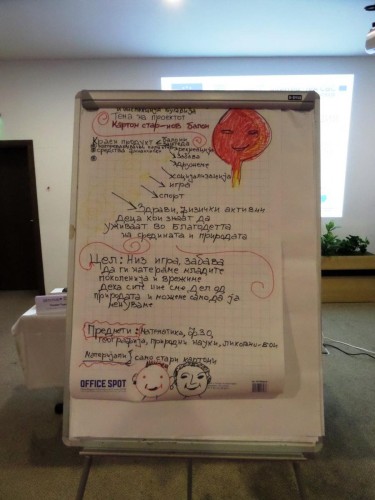 Тема на проектот
Картон стар-нов Балон
Краен продукт Балони
рекреација
забава
дружење
социјализација
игра
спорт
Здрави, физички активни
деца кои знаат да
уживаат во благодетта
на средината и природата
Цел: Низ игра, забава
да ги натераме младите
поколенија и врежиме
дека сите ние сме дел од
природата и можеме само да ја
менуваме
Предмети: Математика, ФЗО,
географија, природни науки, ликовно
Материјали само стари картони
OFFICE SPOT